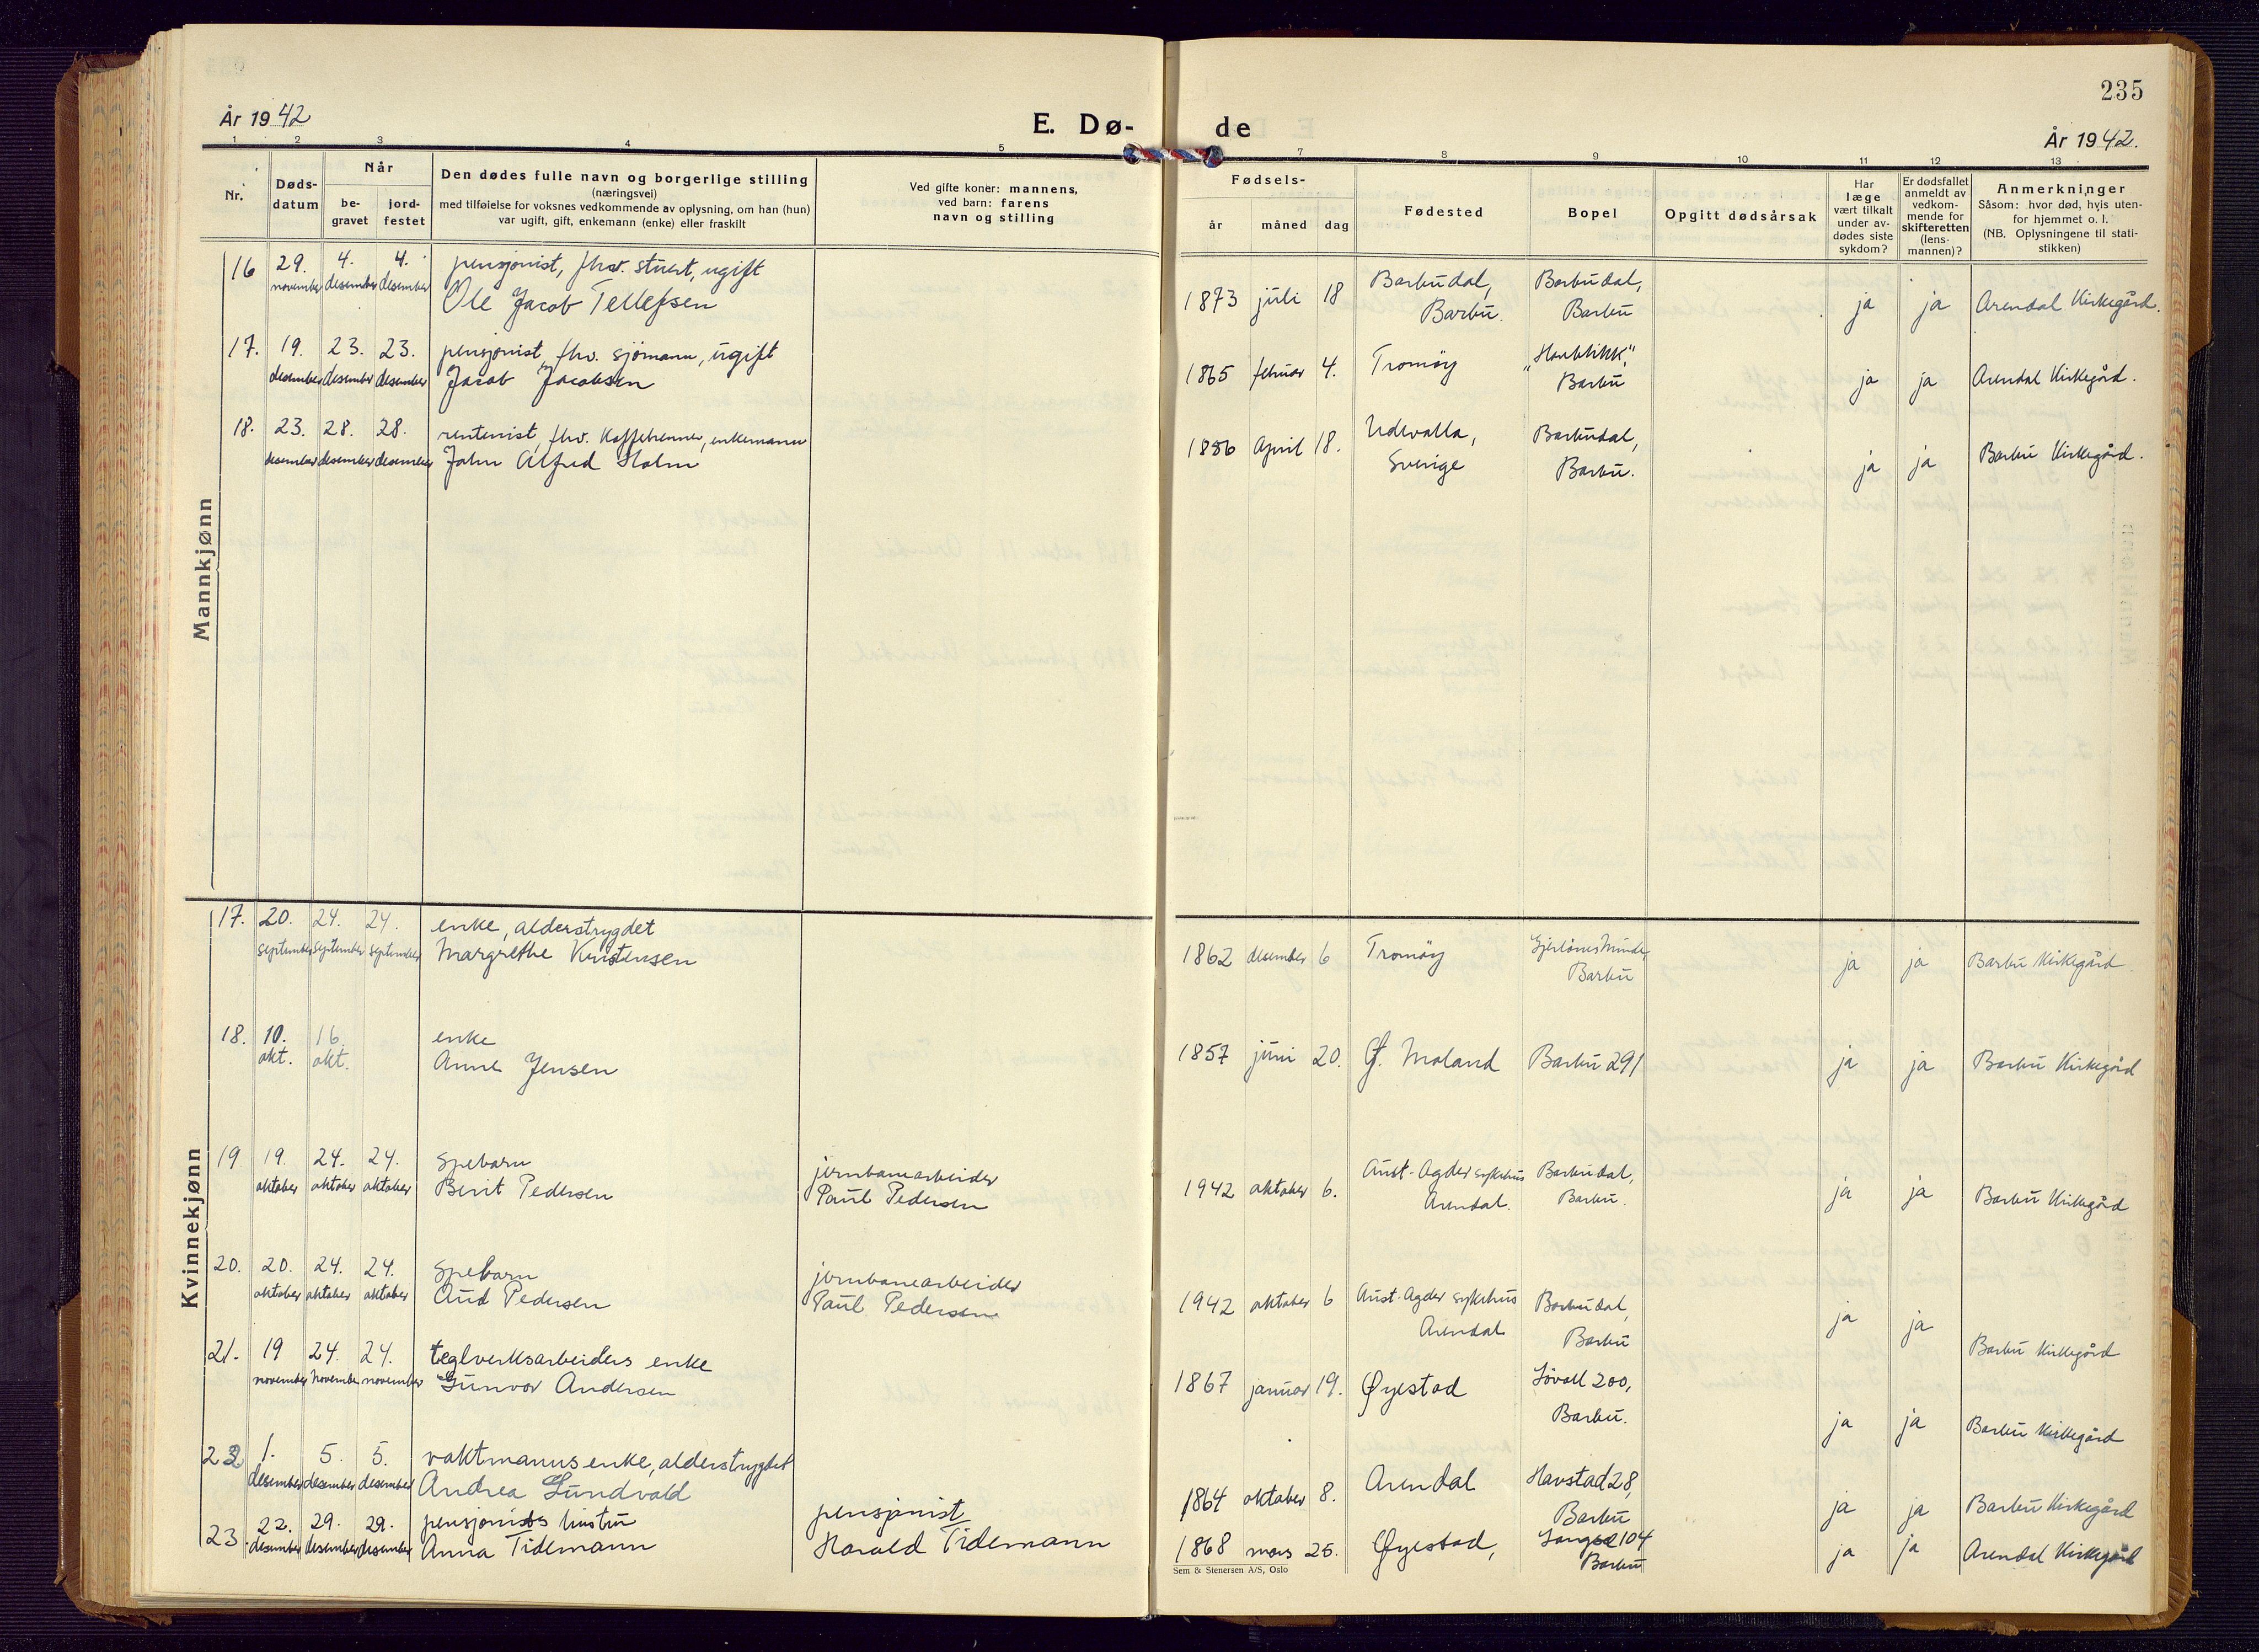 235
År 1942
E. Dø-
de
År 1942.
1 2 3 4 5 7 8 9 10 11 12 13
Nr.
Døds-
datum
Når
be-
gravet
jord-
festet
Den dødes fulle navn og borgerlige stilling
(næringsvei)
med tilføielse for voksnes vedkommende av oplysning, om han (hun)
var ugift, gift, enkemann (enke) eller fraskilt
Ved gifte koner: mannens,
ved barn: farens
navn og stilling
Fødsels-
år
måned
dag
Fødested
Bopel
Opgitt dødsårsak
Har
læge
vært tilkalt
under av-
dødes siste
sykdom?
Er dødsfallet
anmeldt av
vedkom-
mende for
skifteretten
(lens-
mannen)?
Anmerkninger
Såsom: hvor død, hvis uten-
for hjemmet o. l.
(NB. Oplysningene til stati-
stikken)
Mannkjønn
16 29. 4. 4. pensjonist, fhv. stuert, ugift
november desember desember Ole Jacob Tellefsen
1873 juli 18 Barbudal, Barbudal,
Barbu. Barbu ja ja Arendal Kirkegård.
17. 19. 23. 23. pensjonist, fhv. sjömann, ugift
desember desember desember Jacob Jacobsen
1865 februar 4. Tromöy "Havblikk",
Barbu ja ja Arendal Kirkegård.
18. 23. 28. 28. rentenist, fhv. Kaffebrenner, enkemann
desember desember desember John Alfred Holm
1886 April 18. Udevalla, Barbudal,
Sverige Barbu. ja ja Barbu Kirkegård.
Kvinnekjønn
17. 20. 24. 24. enke, alderstrygdet
september september september Margrethe Kristensen
1862 desember 6 Tromöy
Barbu ja ja Barbu Kirkegård
18. 10. 16. enke
okt. okt. Anne Jensen
1857 juni 20. Ø. Moland Barbu 291 ja ja Barbu Kirkegård
19 19. 24. 24. spebarn jernbanearbeider
oktober oktober oktober Berit Pedersen Paul Pedersen
1942 oktober 6. Aust-Agder sykehus Barbudal,
Arendal. Barbu. ja ja Barbu Kirkegård
20. 20. 24. 24. spebarn jernbanearbeider
oktober oktober oktober Aud Pedersen Paul Pedersen
1942 oktober 6 Aust-Agder sykehus Barbudal,
Arendal Barbu ja ja Barbu Kirkegård
21. 19 24. 24. teglverksarbeiders enke
november november november Gunvor Andersen
1867 januar 19. Øyestad Lövoll 200,
Barbu. ja ja Barbu Kirkegård
22 1. 5. 5. vaktmanns enke, alderstrygdet
desember desember desember Andrea Lundvald
1864 oktober 8. Arendal Havstad 28,
Barbu ja ja Barbu Kirkegård
23. 22. 29. 29. pensjonists hustru pensjonist
desember desember desember Anna Tidemann Harald Tidemann
1868 mars 25. Øyestad, Langsæ 104
Barbu ja ja Arendal Kirkegård
Sem & Stenersen A/S, Oslo